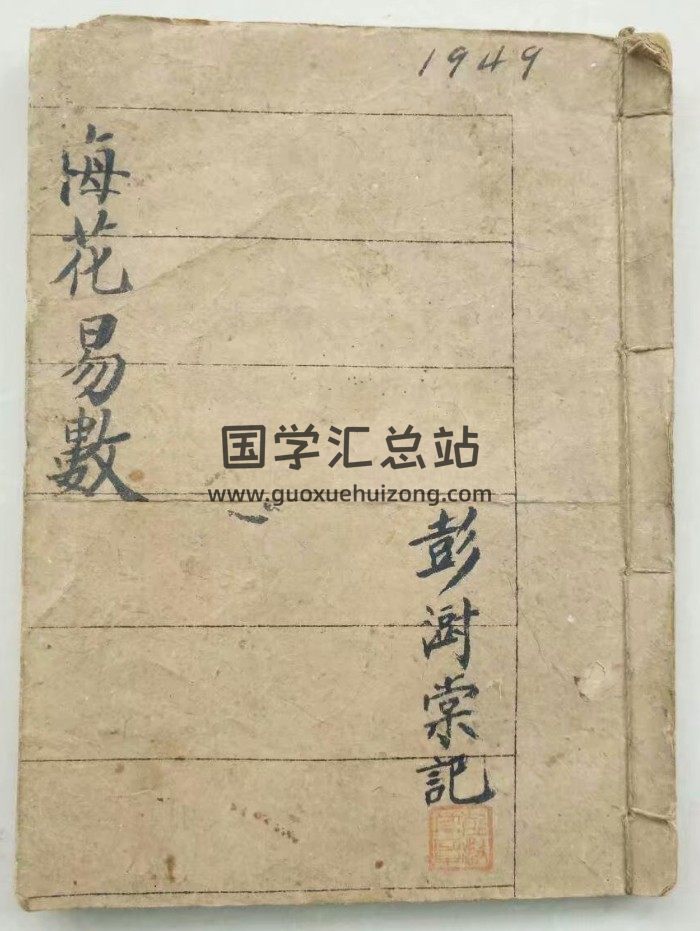 1949
海花易數
国学汇总站
www.guoxuehuizong.com
彭澍棠記